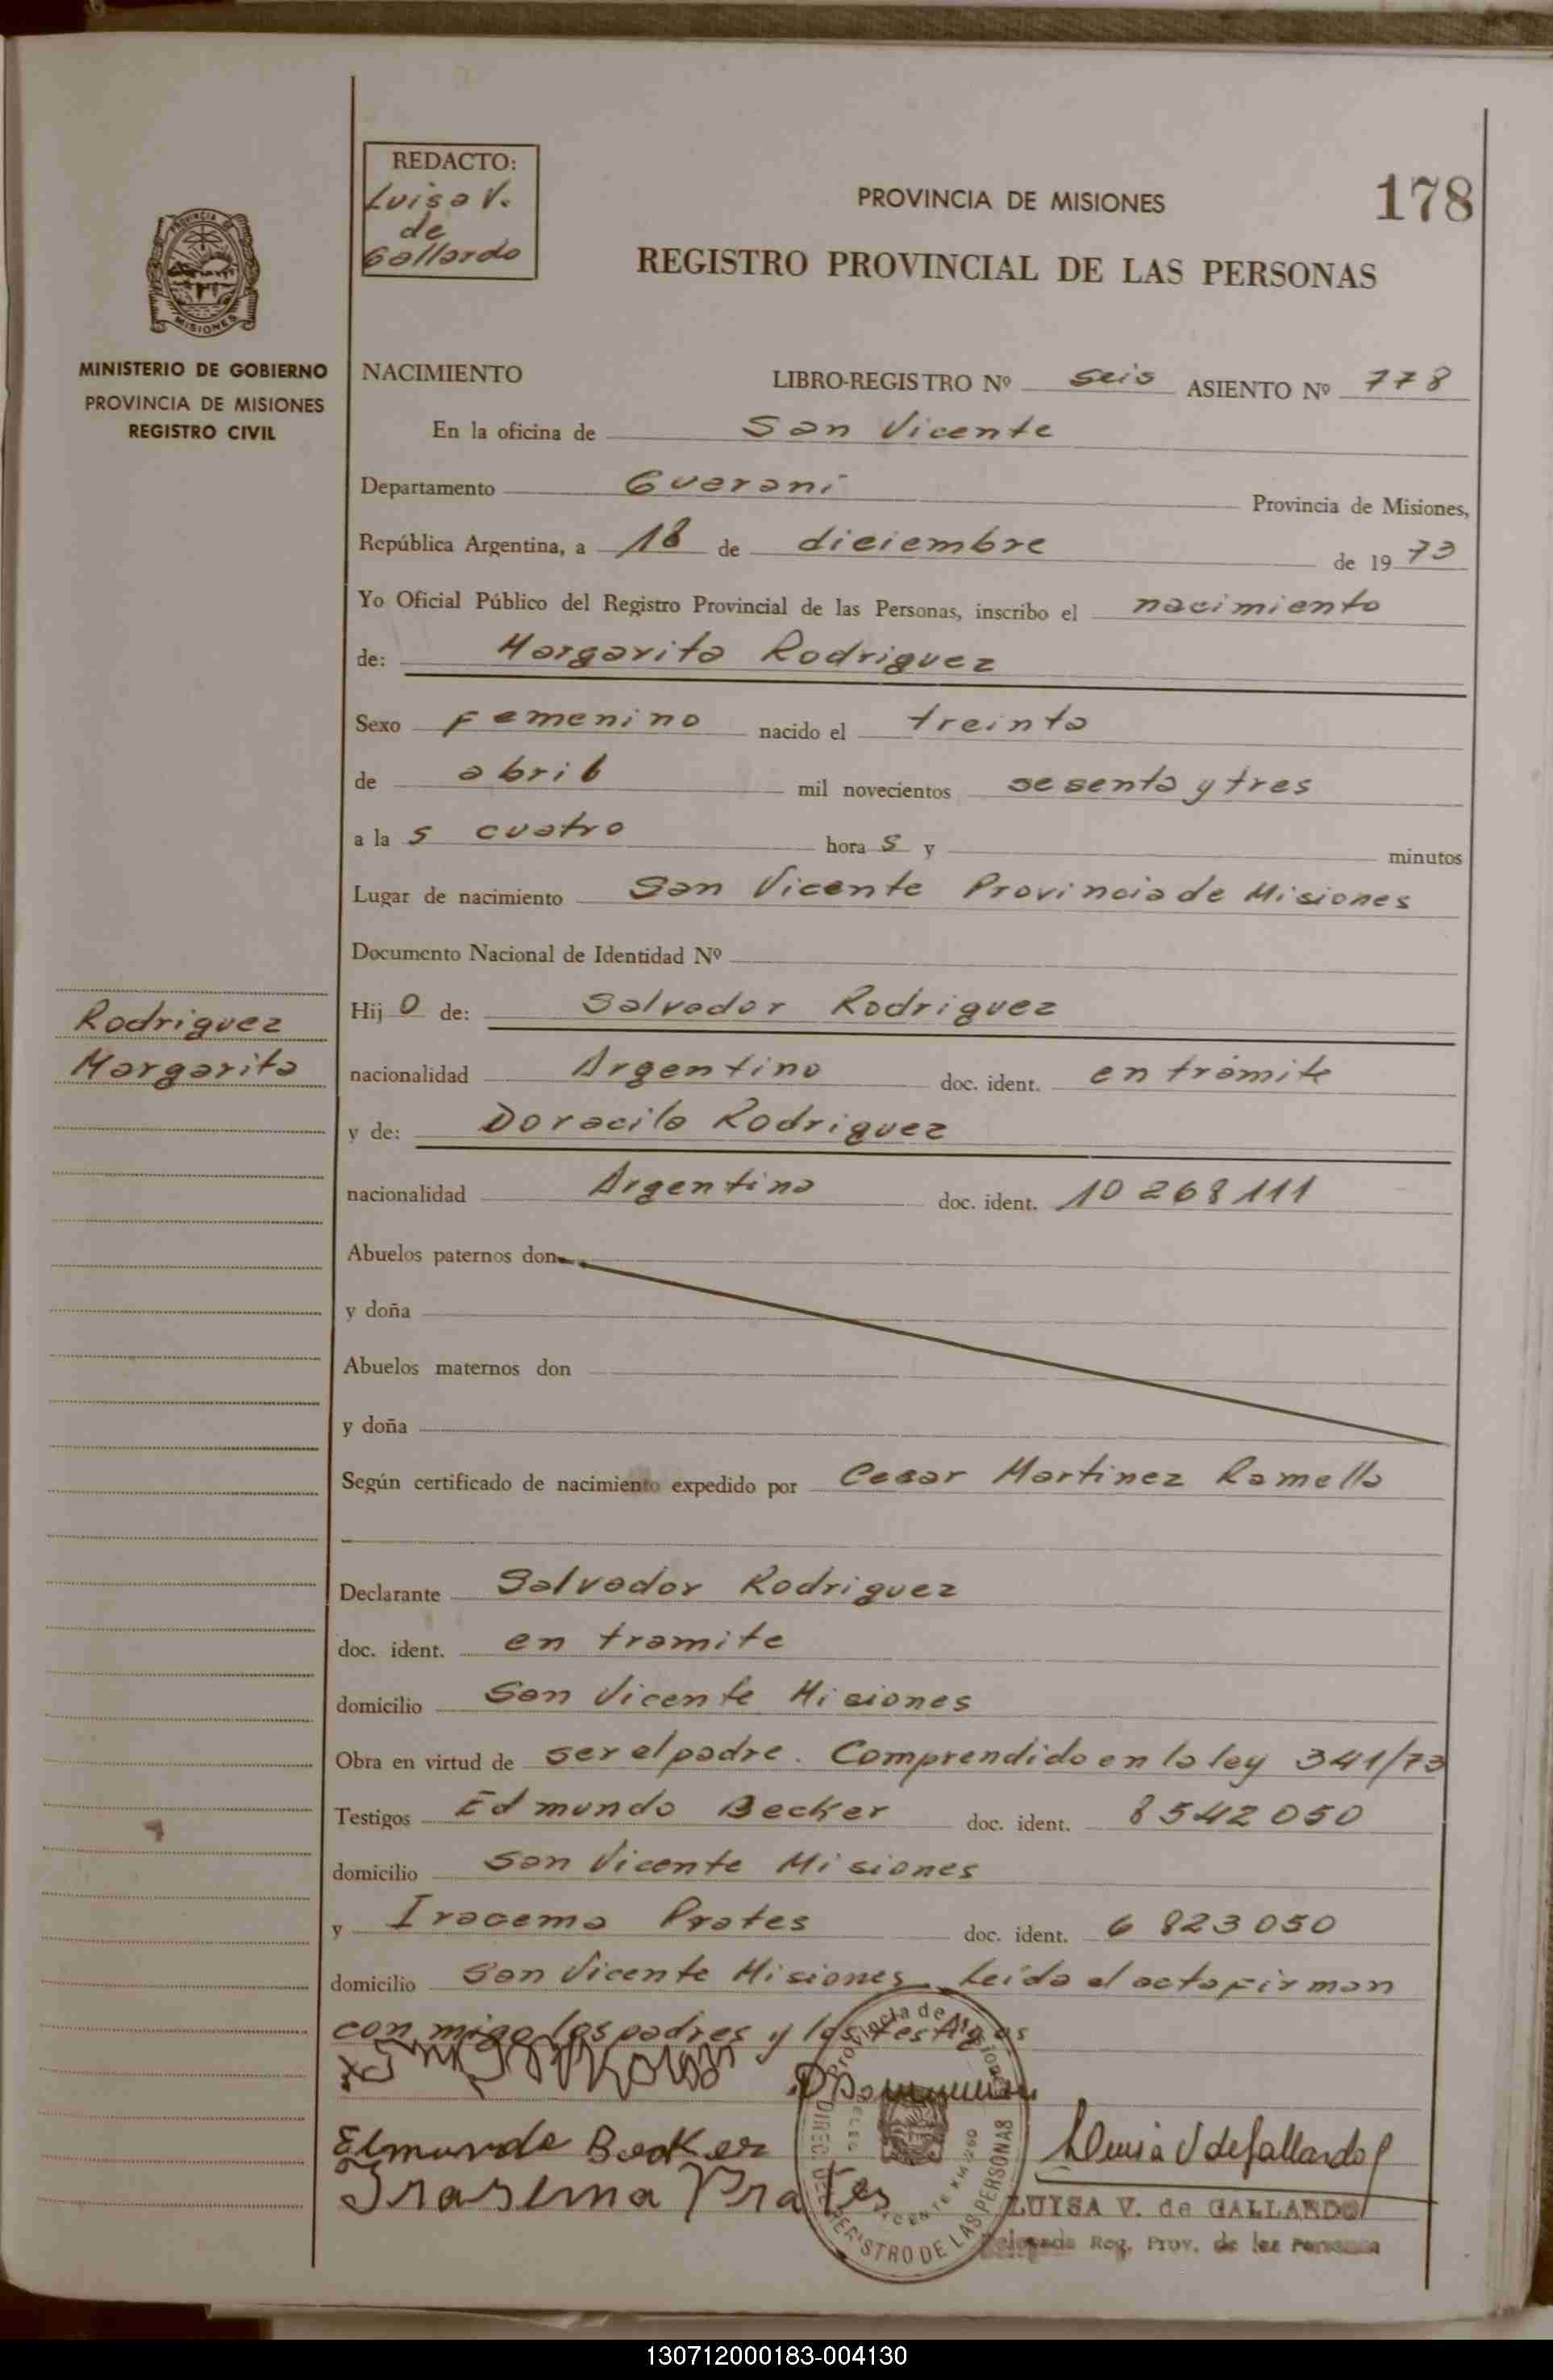 REDACTO:
Luisa V.
de
Gallardo
PROVINCIA DE MISIONES
178
REGISTRO PROVINCIAL DE LAS PERSONAS
PROVINCIA
MISIONES
MINISTERIO DE GOBIERNO
PROVINCIA DE MISIONES
REGISTRO CIVIL
NACIMIENTO LIBRO-REGISTRO Nº seis ASIENTO Nº 778
En la oficina de San Vicente
Departamento Guarani Provincia de Misiones,
República Argentina, a 18 de diciembre de 1973
Yo Oficial Público del Registro Provincial de las Personas, inscribo el nacimiento
de: Margarita Rodriguez
Sexo Femenino nacido el treinta
de abril mil novecientos sesenta y tres
a las cuatro horas y minutos
Lugar de nacimiento San Vicente Provincia de Misiones
Documento Nacional de Identidad Nº
Rodriguez
Margarita
Hijo de: Salvador Rodriguez
nacionalidad Argentino doc. ident. en trámite
y de: Doracila Rodriguez
nacionalidad Argentina doc. ident. 10 268 111
Abuelos paternos don
y doña
Abuelos maternos don
y doña
Según certificado de nacimiento expedido por Cesar Martinez Ramella
Declarante Salvador Rodriguez
doc. ident. en tramite
domicilio San Vicente Misiones
Obra en virtud de ser el padre. Comprendido en la ley 341/73
Testigos Edmundo Becker doc. ident. 8542050
domicilio San Vicente Misiones
y Iracema Prates doc. ident. 6 823 050
domicilio San Vicente Misiones Leída el acta firman
con migo los padres y los testigos
Elmundo Becker
Irasema Prates
Luisa V de Gallardo
LUISA V. de GALLARDO
Delegada Reg. Prov. de las Personas
Provincia de Misiones
REGISTRO DE LAS PERSONAS
130712000183-004130